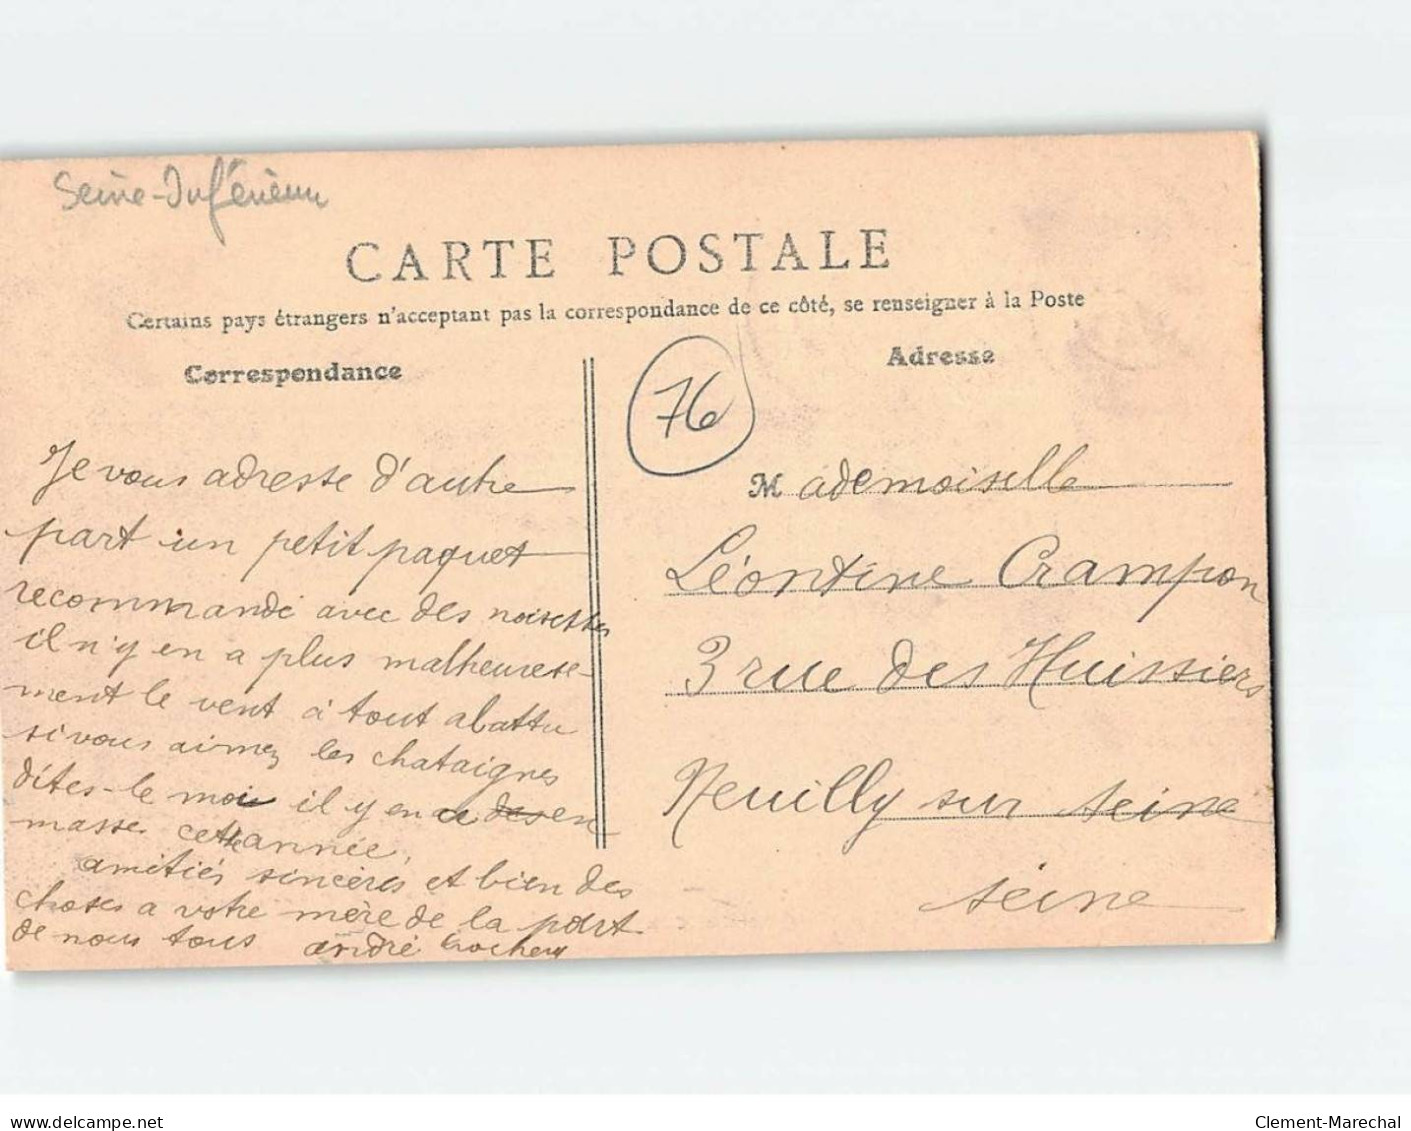 Seine-Inférieure
CARTE POSTALE
Certains pays étrangers n'acceptant pas la correspondance de ce côté, se renseigner à la Poste
Correspondance
Adresse
76
Je vous adresse d'autre
part un petit paquet
recommandé avec des noisettes
il n'y en a plus malheureuse-
ment le vent à tout abattu
si vous aimez les chataignes
dites-le moi il y en a des en
masse cette année,
amitiés sincères et bien des
choses a votre mère de la part
de nous tous andré
Mademoiselle
Léontine Crampon
3 rue des Huissiers
Neuilly sur seine
seine
www.delcampe.net
Clement-Marechal